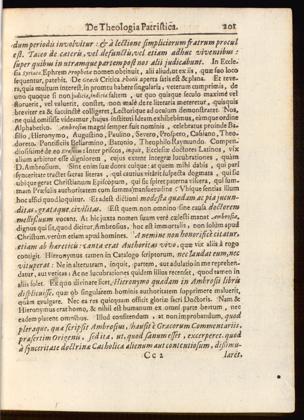 De Theologia Patristica. 201
dum periodis involvitur: & à lectione simplicierum fratrum procul
est. Taceo de cæteris, vel defunctis, vel etiam adhuc viventibus:
super quibus in utramque partem post nos alii judicabunt. In Eccle-
sia Syriaca Ephrem Propheta nomen obtinuit, alii aliud, ut ex iis, quæ suo loco
sequentur, patebit. De Græcis Critica Photii aperta satis est & plana. Et reve-
ra, quis multum interest in promtu habere singularia, veterum
omnino quoque si non judicia, indicia saltem, ut quo quisque seculo maximè vel
floruerit, vel valuerit, constet, non malè de re literaria meretur, quisquis
breviter ea & succinctè colligere, Lectorique ad oculum demonstrare
ne quid omisisse videamur, hujus instituti Ideam exhibebimus, eamque ordine
Alphabetico. Ambrosius magni semper fuit nominis, celebratus proinde Ba-
silio, Hieronymo, Augustino, Paulino, Severo, Prospero, Cassiano, Theo-
doreto. Pontificiis Bellarmino, Baronio, Theophilo Raynaudo.
inquit, Ecclesiæ doctores Latinos, vix
alium arbitror esse digniorem, cujus extent integræ lucubrationes, quàm
D. Ambrosium. Sint enim suæ dotes cuique: at quem mihi dabis, qui pari
synceritate tractet sacras literas, qui cautius vitârit suspecta dogmata, qui sic
ubique gerat Christianum Episcopum, qui sic spiret paterna viscera, qui
Præsulis authoritatem cum summa mansuetudine? Ubique sentias illum
hoc affici quod loquitur. Est adest dictioni modesta quædam ac pia jucun-
ditas, grataque civilitas. Est quem non omnino sine causa doctorem
mellifluum vocant. Ac hic juxta nomen suum verè cælesti manat Ambrosia,
dignus qui sit, quod dicitur, Ambrosius, hoc est immortalis, non solùm apud
Christum, verùm etiam apud homines. A nemine non honorificè citatur,
etiam ab hæreticis: tanta erat Authoritas viro, quæ vix aliis à rogo
contigit. Hieronymus tamen in Catalogo scriptorum, nec laudat eum, nec
vituperat: Ne in alterutrum, inquit, partem, aut adulatio in me reprehen-
datur, aut veritas: Ac ne lucubrationes quidem illius recenset, quod tamen in
aliis solet. Ex quo divinare licet, Hieronymo quædam in Ambrosii libris
displicuisse, quæ ob singularem hominis authoritatem supprimere maluerit,
quàm evulgare. Nec ea res quicquam officit gloriæ sacri Doctoris. Nam &
Hieronymus erat homo, & nihil est humanum ex omni parte beatum, nec
eadem placent omnibus. Illud confitendum, at non improbandum, quod
pleraque, quæ scripsit Ambrosius, hausit è Græcorum Commentariis,
præsertim Origenis, sedita, ut, quod sanum esset, excerperet, quod
à synceritate doctrinæ Catholicæ alienum aut contentiosum, dissimu-
Cc 2 laret.